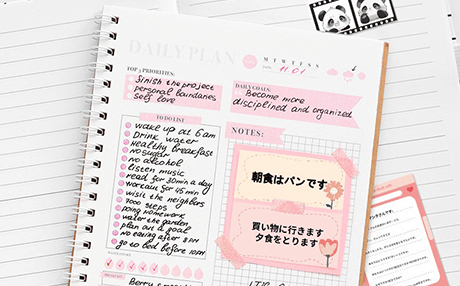 DAILY PLAN
M T W T F S S
11.01
TOP 3 PRIORITIES:
Sinish the project
personal boundaries
self love
DAILY GOALS:
Become more
disciplined and organized
TO DO LIST
wake up at 6 am
Drink water
Healthy breakfast
no sugar
no alcohol
listen music
read for 30min a day
workout for 45 min
visit the neighbors
7000 steps
doing homework
water the garden
plan out a goal
no eating after 8 PM
go to bed before 10PM
NOTES:
朝食はパンです
買い物に行きます
夕食をとります